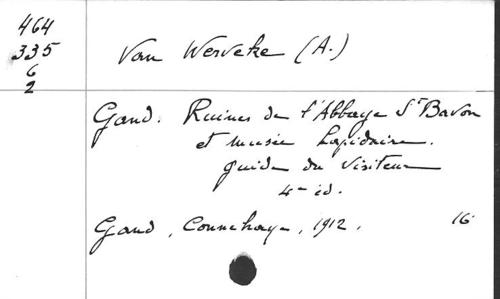 464
335
6
2
Van Werveke (A.)
Gand. Ruines de l'Abbaye St Bavon
et musée Lapidaire.
guide du Visiteur
4e éd.
Gand, Connehaye, 1912. 16